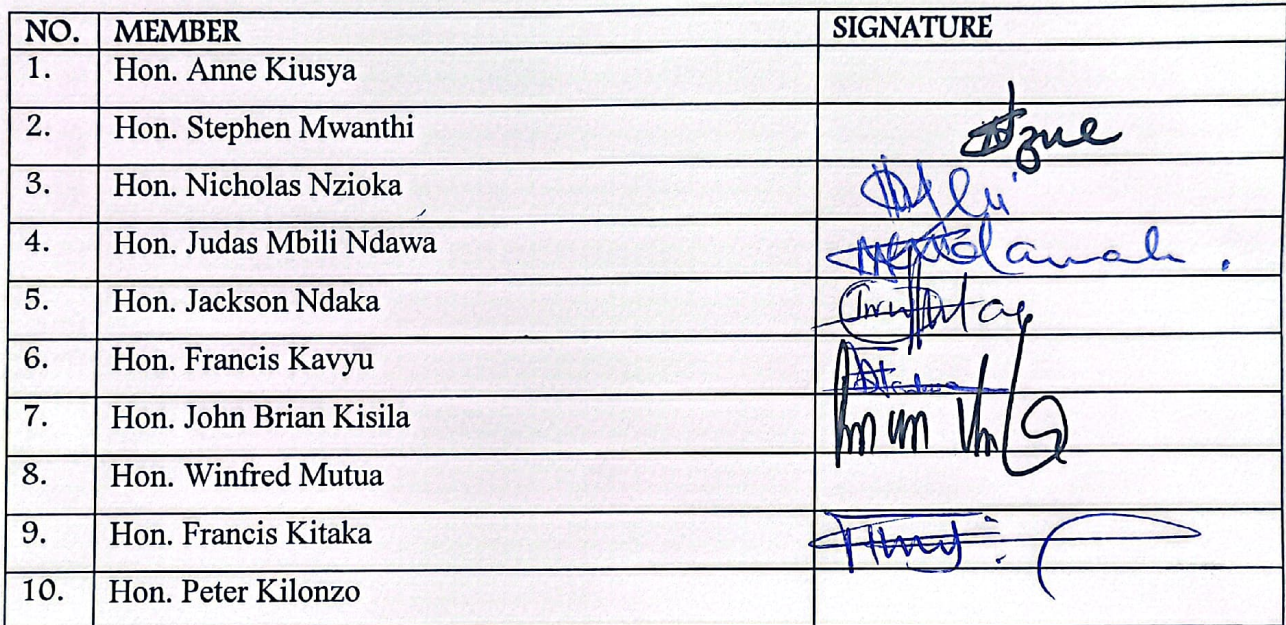 NO. MEMBER SIGNATURE
1. Hon. Anne Kiusya
2. Hon. Stephen Mwanthi
3. Hon. Nicholas Nzioka
4. Hon. Judas Mbili Ndawa
5. Hon. Jackson Ndaka
6. Hon. Francis Kavyu
7. Hon. John Brian Kisila
8. Hon. Winfred Mutua
9. Hon. Francis Kitaka
10. Hon. Peter Kilonzo